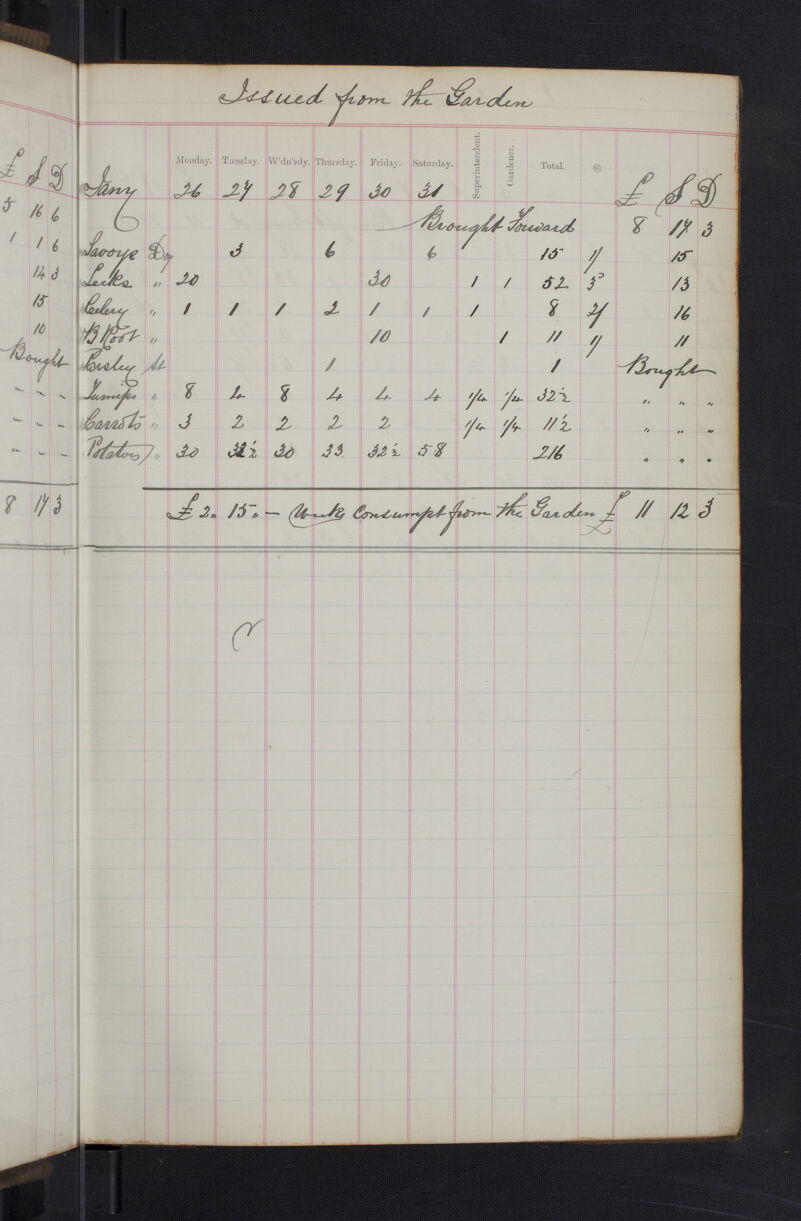 £ S D
5 16 6
1 1 6
14 3
15
10
Bought
" " "
" " "
" " "
8 17 3
Issued from the Garden
Monday. Tuesday. W'dn'sdy. Thursday. Friday. Saturday. Superintendent. Gardener. Total. @
Jany 26 27 28 29 30 31 £ S D
Brought Forward 8 17 3
Savoys Doz 3 6 6 15 1/ 15
Leeks " 20 30 1 1 52 3d 13
Celery " 1 1 1 2 1 1 1 8 2/ 16
B Root " 10 1 11 1/ 11
Parsley St 1 1 Bought
Turnips " 8 4 8 4 4 4 1/4 1/4 32½ " " "
Carrots " 3 2 2 2 2 1/4 1/4 11½ " " "
Potatoes " 30 32½ 30 33 32½ 58 216 " " "
£ 2 " 15 " – Weeks Consumpt from the Garden £ 11 12 3